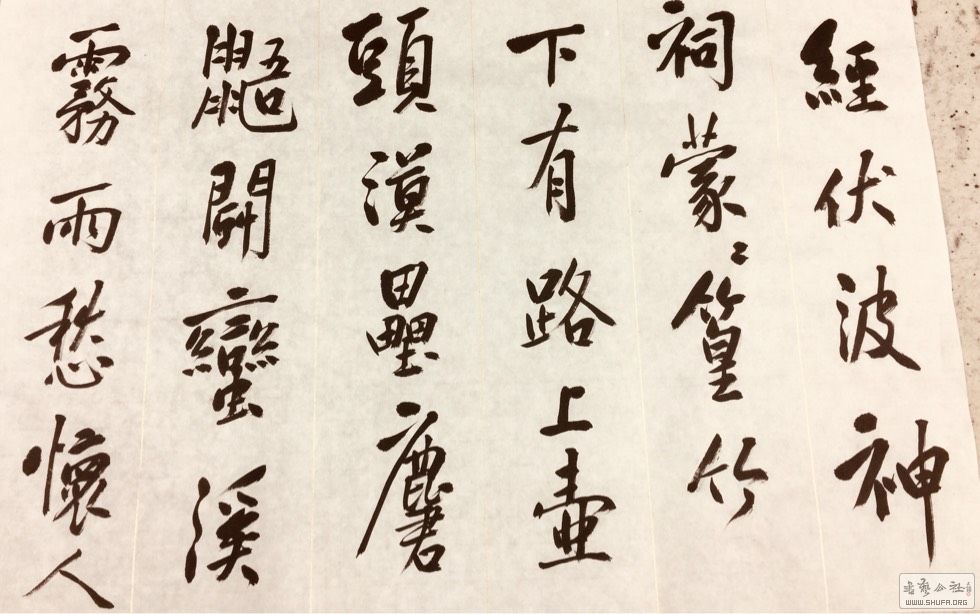 經伏波神
祠蒙〻篁竹
下有路上壺
頭漢壘麏
鼯鬭蠻溪
霧雨愁懷人
书艺公社
WWW.SHUFA.ORG